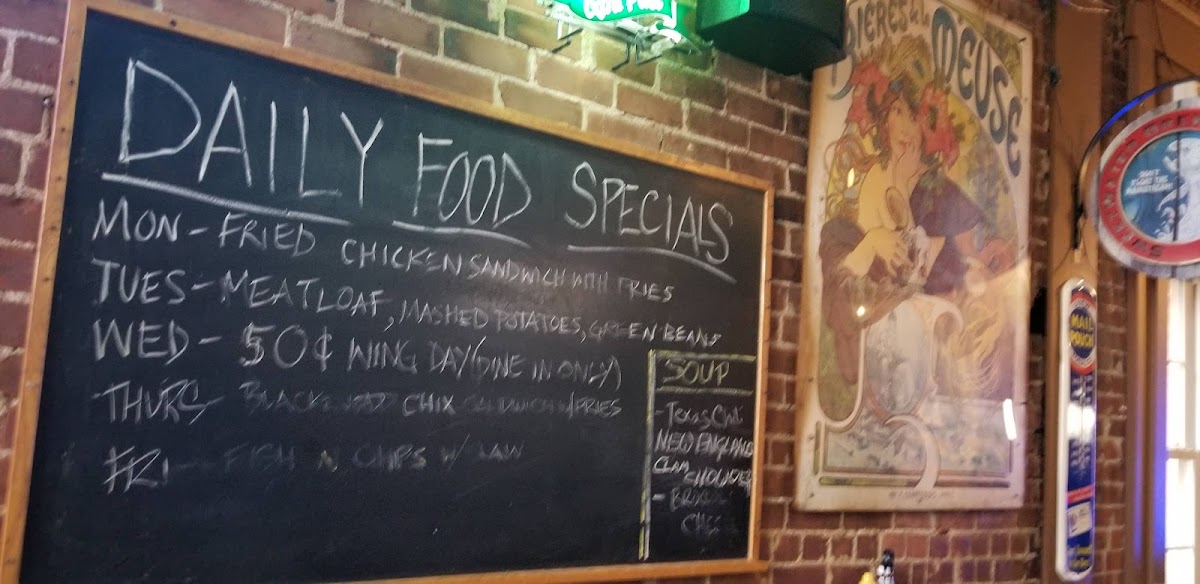 DAILY FOOD SPECIALS
MON - FRIED CHICKEN SANDWICH WITH FRIES
TUES - MEATLOAF, MASHED POTATOES, GREEN BEANS
WED - 50¢ WING DAY (DINE IN ONLY)
THURS BLACKENED CHIX SANDWICH W/FRIES
FRI - FISH N CHIPS W/ SLAW
SOUP
- Texas Chili
NEW ENGLAND
CLAM
CHOWDER
BIÈRES de la
MEUSE
MAIL
POUCH